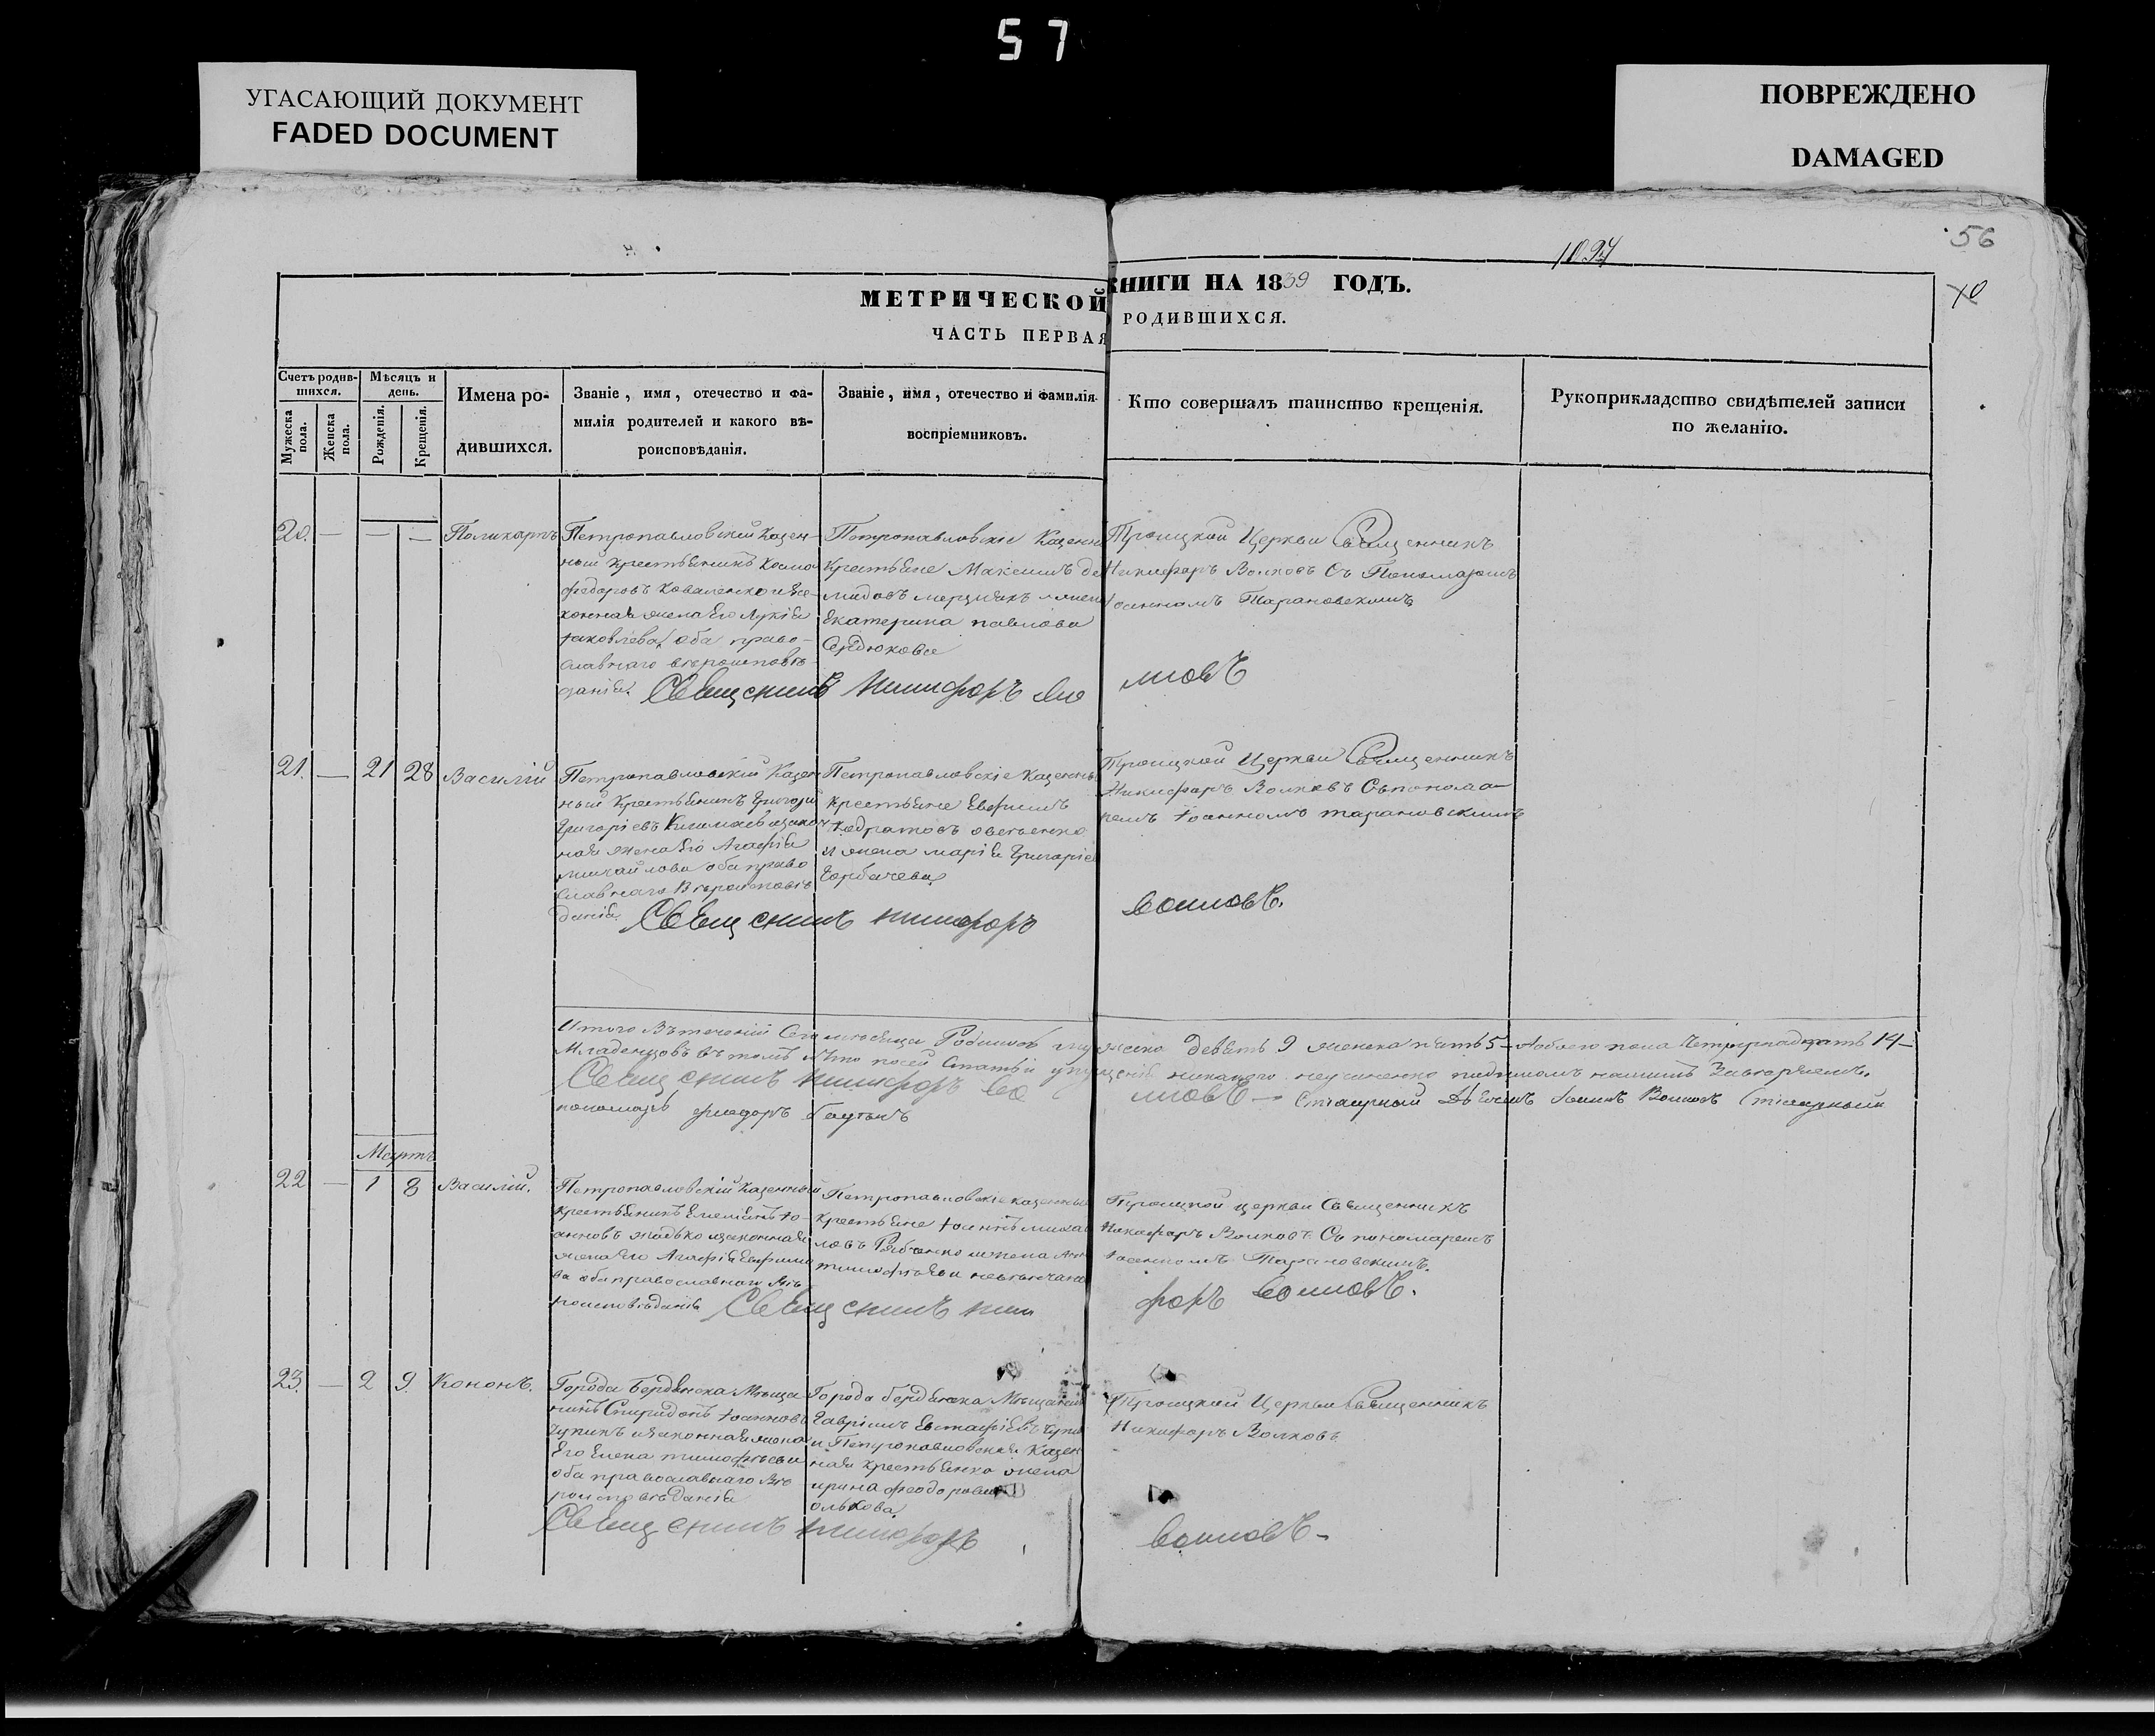 57
УГАСАЮЩИЙ ДОКУМЕНТ
FADED DOCUMENT
ПОВРЕЖДЕНО
DAMAGED
56
1094
МЕТРИЧЕСКОЙ КНИГИ НА 1839 ГОДЪ.
ЧАСТЬ ПЕРВАЯ РОДИВШИХСЯ.
Счетъ родив-
шихся.
Мужеска пола.
Женска пола.
Мѣсяцъ и
день.
Рожденія.
Крещенія.
Имена ро-
дившихся.
Званіе, имя, отечество и фа-
милія родителей и какого вѣ-
роисповѣданія.
Званіе, имя, отечество и фамилія
воспріемниковъ.
Кто совершалъ таинство крещенія.
Рукоприкладство свидѣтелей записи
по желанію.
20. — — — Поликарпъ
Петропавловскій Казен-
ный крестьянинъ Косма
Федоровъ Коваленко и за-
конная жена его Лукія
Яковлева оба право-
славнаго вѣроисповѣ-
данія.
Петропавловскіе Казенны
крестьяне Максимъ Де
мидовъ и жена
Екатерина Павлова
Сердюкова
Троицкой Церкви Священникъ
Никифоръ Волковъ Съ Пономаремъ
Іоанномъ Тарановскимъ
Священникъ Никифоръ Волковъ
21. — 21 28 Василій
Петропавловскій Казен
ный Крестьянинъ Григорій
Григоріевъ и закон
ная жена его Агафія
Михайлова оба право
славнаго Вѣроисповѣ
данія.
Петропавловскіе казенны
крестьяне Евфимъ
Кодратовъ
и жена Марія Григоріе
Горбачева
Троицкой Церкви Священникъ
Никифоръ Волковъ Съ понома
ремъ Іоанномъ Тарановскимъ
Священникъ Никифоръ Волковъ.
Итого Въ теченіи Сего мѣсяца Родилось мужеска девять 9 женска пять 5 — обоего пола Четырнадцать 14 —
Младенцовъ въ томъ что по сей Статьи упущенія никакого неучиненно подписомъ нашимъ Завѣряемъ.
Священникъ Никифоръ Волковъ —
пономарь Феодоръ
Мартъ
22 — 1 8 Василій.
Петропавловскій Казенный
крестьянинъ Емеліанъ Іо-
анновъ и законная
жена его Агафія Ефимо
ва оба православнаго Вѣ
роисповѣданія
Петропавловскіе казенные
крестьяне Іоаннъ Михаи
ловъ Рябченко и жена
Тимофѣева
Троицкой церкви Священникъ
Никифоръ Волковъ Съ пономаремъ
Іоанномъ Тарановскимъ.
Священникъ Никифоръ Волковъ.
23. — 2 9. Кононъ.
Города Бердянска Мѣща
нинъ Спиридонъ Іоанновъ
Чупикъ и законная жена
Его Елена Тимофѣева
оба православнаго Вѣ
роисповѣданія
Города Бердянска Мѣщанинъ
Гавріилъ Евстафіевъ
и Петропавловская Казен
ная крестьянка жена
Ирина Феодорова
Троицкой Церкви Священникъ
Никифоръ Волковъ
Священникъ Никифоръ Волковъ —